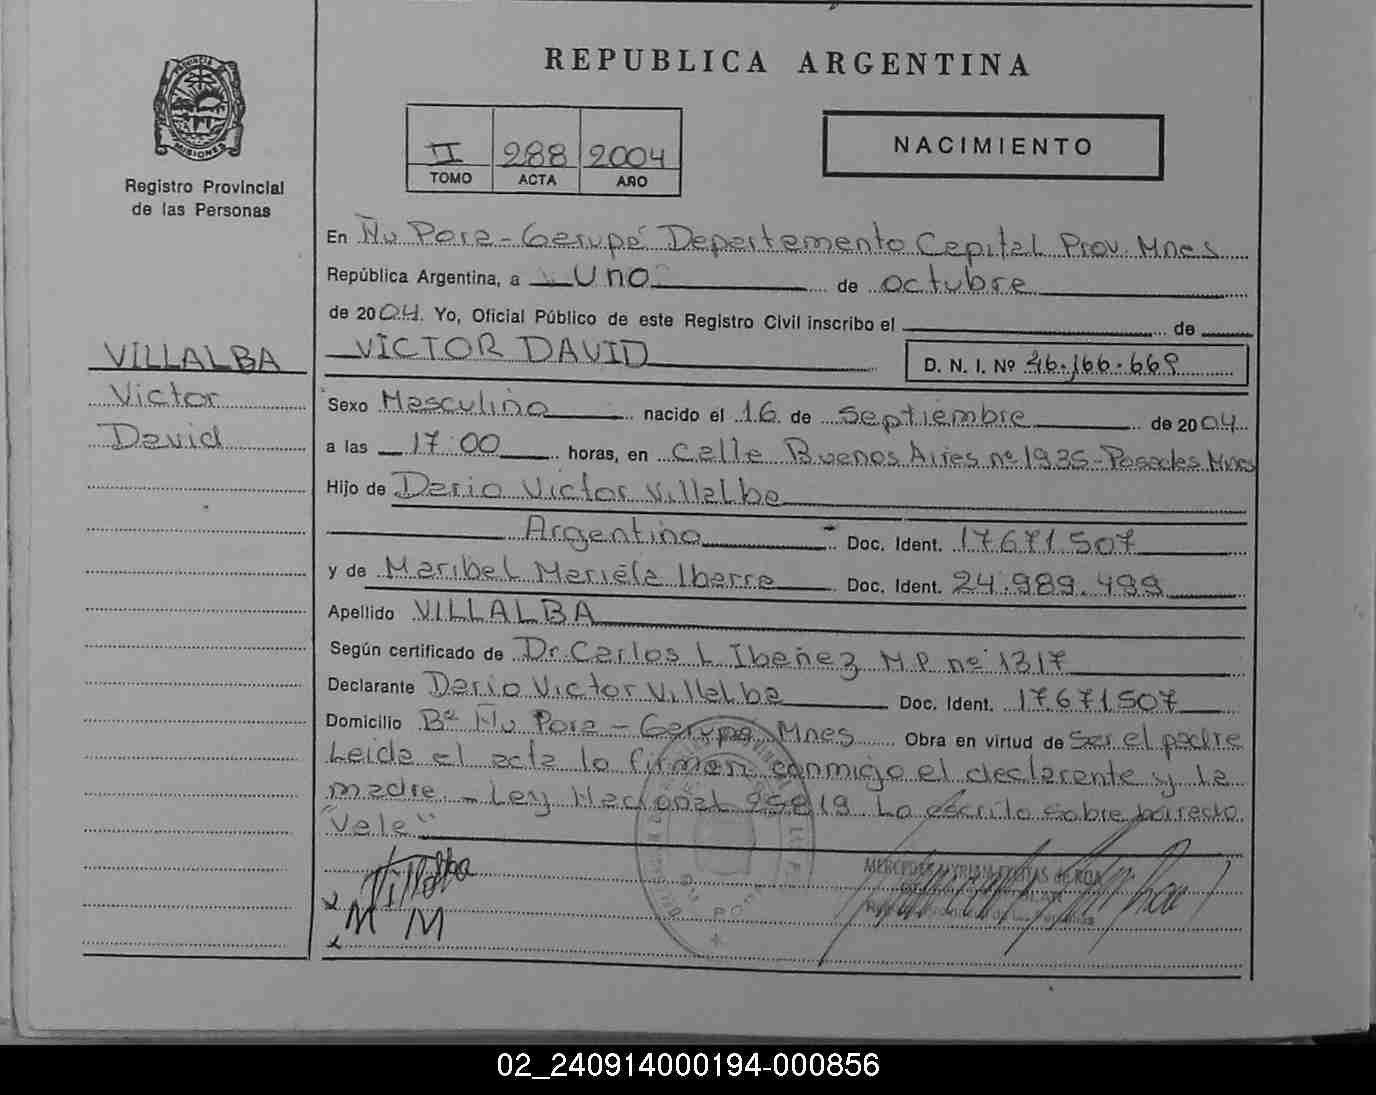 REPUBLICA ARGENTINA
PROVINCIA
MISIONES
Registro Provincial
de las Personas
II 288 2004
TOMO ACTA AÑO
NACIMIENTO
En Ñu Pora - Garupá Departamento Capital Prov. Mnes
República Argentina, a Uno de octubre
de 2004. Yo, Oficial Público de este Registro Civil inscribo el de
VICTOR DAVID D. N. I. Nº 46.166.669
VILLALBA
Victor
David
Sexo Masculino nacido el 16 de Septiembre de 2004
a las 17:00 horas, en Calle Buenos Aires nº 1935 - Posadas Mnes
Hijo de Dario Victor Villalba
Argentino Doc. Ident. 17671507
y de Maribel Mariela Ibarra Doc. Ident. 24.989.499
Apellido VILLALBA
Según certificado de Dr. Carlos L Ibañez M.P. nº 1317
Declarante Dario Victor Villalba Doc. Ident. 17671507
Domicilio Bº Ñu Pora - Garupá Mnes Obra en virtud de Ser el padre
Leida el acta la firman conmigo el declarante y la
madre. - Ley Nacional 25819 Lo escrito sobre
"Vale"
Villalba
x
M M
x
MERCEDES MYRIAM
02_240914000194-000856